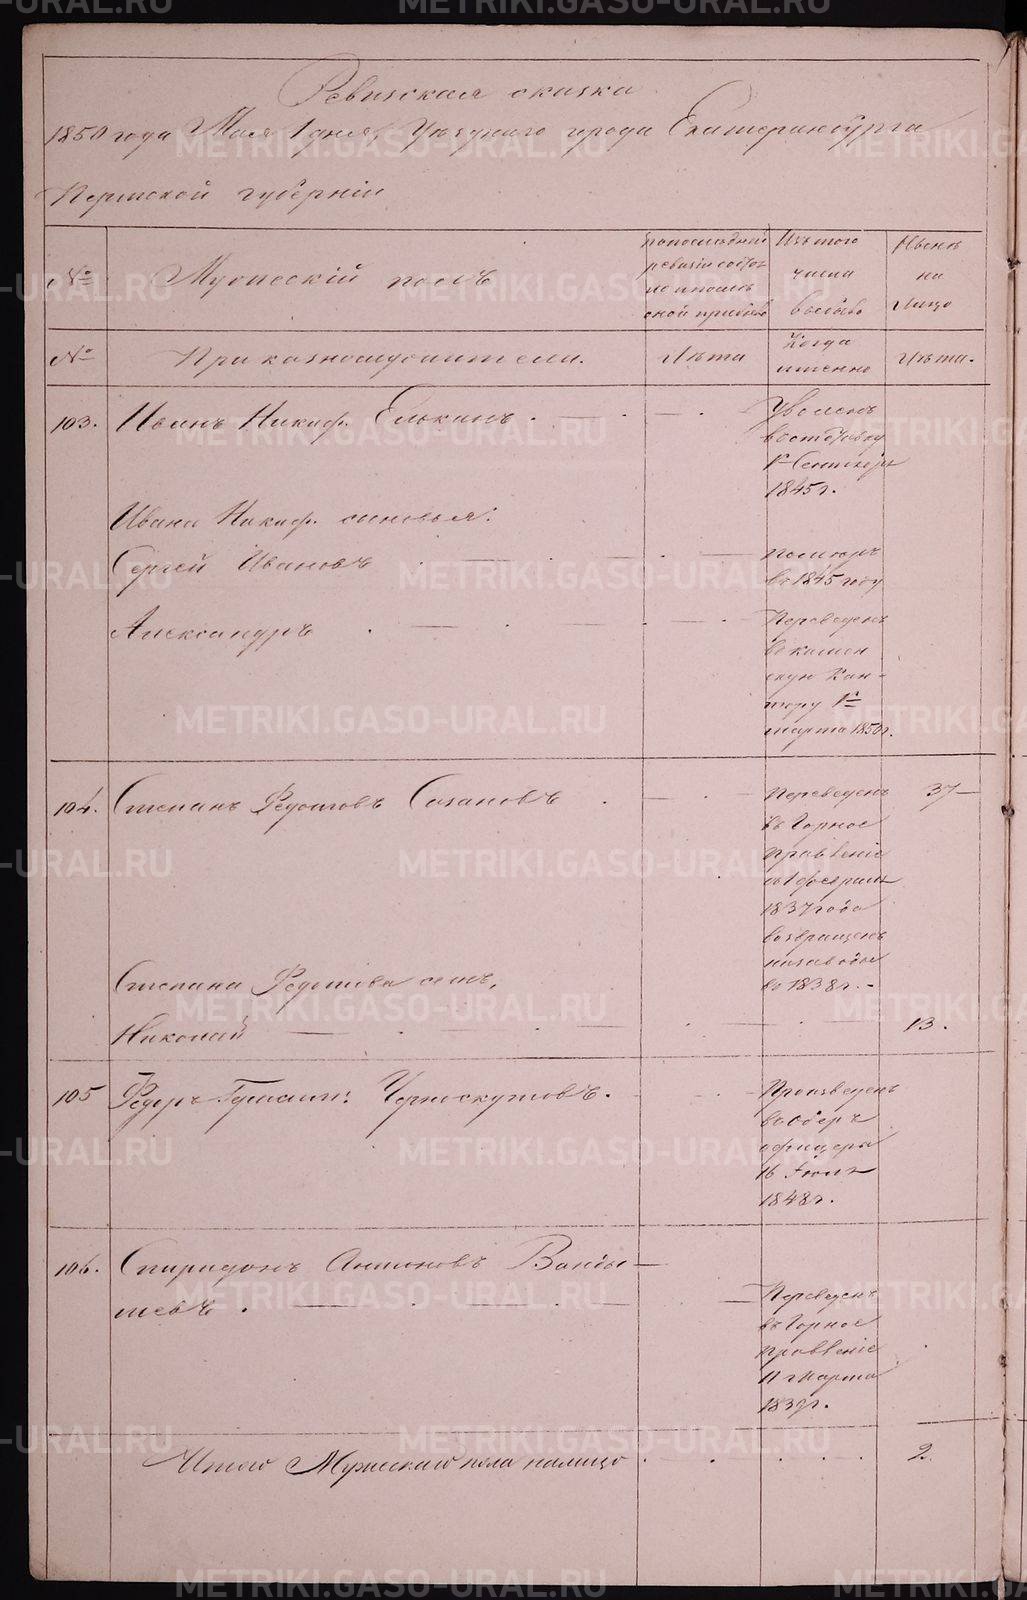 Ревизская сказка
1850 года Мая 1 дня, Уезднаго города Екатеринбурга
Пермской губерніи
№ Мужескій полъ
по последней ревизіи состояло и после оной прибыло
Изъ того числа выбыло
Ныне на лицо
№ При казначействе
Лѣта
Когда именно
Лѣта.
103. Иванъ Никиф. Елькинъ.
Уволенъ
въ отставку
1го Сентября
1845 г.
Ивана Никиф. сыновья:
Сергей Ивановъ
померъ
въ 1845 году
Александръ
Переведенъ
въ камен
скую Кон-
тору 1го
марта 1850 г.
104. Степанъ Федотовъ Сазановъ
Переведенъ 37
въ Горное
правленіе
въ 1 февраля
1837 года
возвращенъ
на заводы
въ 1838 г.
Степана Федотова сынъ,
Николай 13.
105 Федеръ Черноскутовъ.
Произведенъ
въ Оберъ
офицеры
16 Іюля
1848 г.
106. Спиридонъ Антоновъ Ванды-
шевъ.
Переведенъ
въ Горное
правленіе
11 марта
1839 г.
Итого Мужескаго пола налицо 2.
METRIKI.GASO-URAL.RU